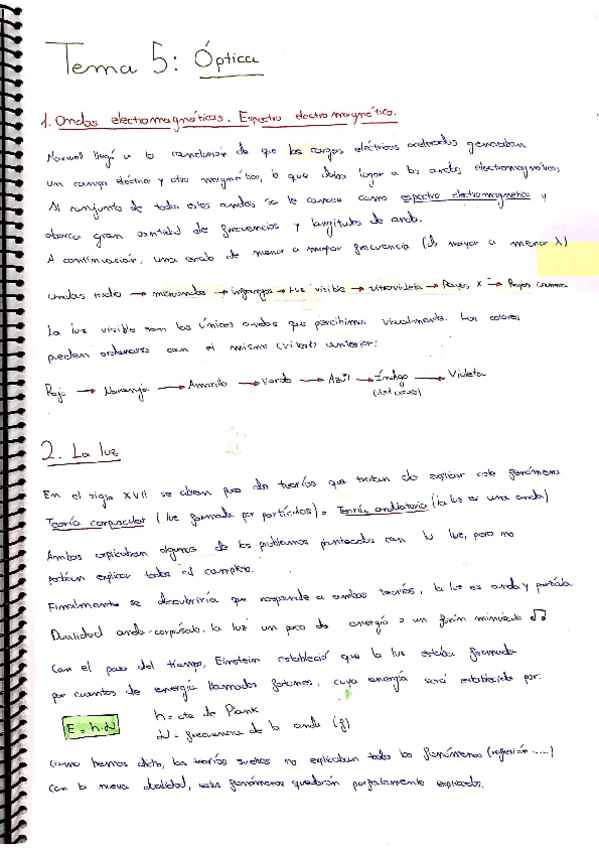 Tema 5: Óptica
1. Ondas electromagnéticas. Espectro electromagnético.
Maxwell llegó a la conclusión de que las cargas eléctricas aceleradas generaban
un campo eléctrico y otro magnético, lo que daba lugar a las ondas electromagnéticas.
Al conjunto de todas estas ondas se le conoce como espectro electromagnético y
abarca gran cantidad de frecuencias y longitudes de onda.
A continuación, una escala de menor a mayor frecuencia (de mayor a menor λ)
ondas radio → microondas → infrarrojos → Luz visible → ultravioleta → Rayos X → Rayos gamma
La luz visible son las únicas ondas que percibimos visualmente. Los colores
pueden ordenarse con el mismo criterio anterior:
Rojo → Naranja → Amarillo → Verde → Azul → Índigo → Violeta
(Azul oscuro)
2. La luz
En el siglo XVII se dieron dos teorías que tratan de explicar este fenómeno
Teoría corpuscular (luz formada por partículas) o Teoría ondulatoria (la luz es una onda)
Ambas explicaban algunos de los problemas planteados con la luz, pero no
podían explicar todos al completo.
Finalmente se descubriría que responde a ambas teorías, la luz es onda y partícula
Dualidad onda-corpúsculo. la luz un poco de energía o un fotón minúsculo
Con el paso del tiempo, Einstein estableció que la luz estaba formada
por cuantos de energía llamados fotones, cuya energía será establecida por:
E = h·ν
h = cte de Plank
ν = frecuencia de la onda (f)
como hemos dicho, las teorías sueltas no explicaban todos los fenómenos (reflexión .....)
Con la nueva dualidad, estos fenómenos quedarán perfectamente explicados.